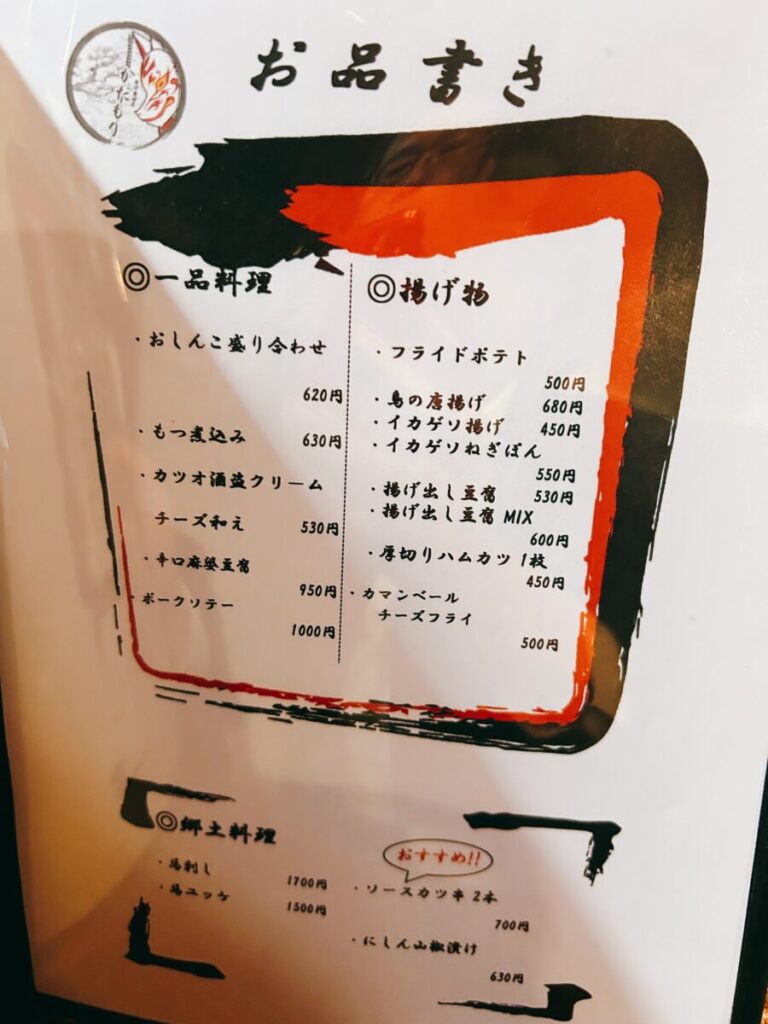 かたもり
お品書き
◎一品料理
・おしんこ盛り合わせ
620円
・もつ煮込み 630円
・カツオ酒盗クリーム
チーズ和え 530円
・辛口麻婆豆腐
950円
・ポークソテー
1000円
◎揚げ物
・フライドポテト
500円
・鳥の唐揚げ 680円
・イカゲソ揚げ 450円
・イカゲソねぎぽん
550円
・揚げ出し豆腐 530円
・揚げ出し豆腐 MIX
600円
・厚切りハムカツ 1枚
450円
・カマンベール
チーズフライ
500円
◎郷土料理
・馬刺し 1700円
・馬ユッケ 1500円
おすすめ!!
・ソースカツ串 2本
700円
・にしん山椒漬け
630円